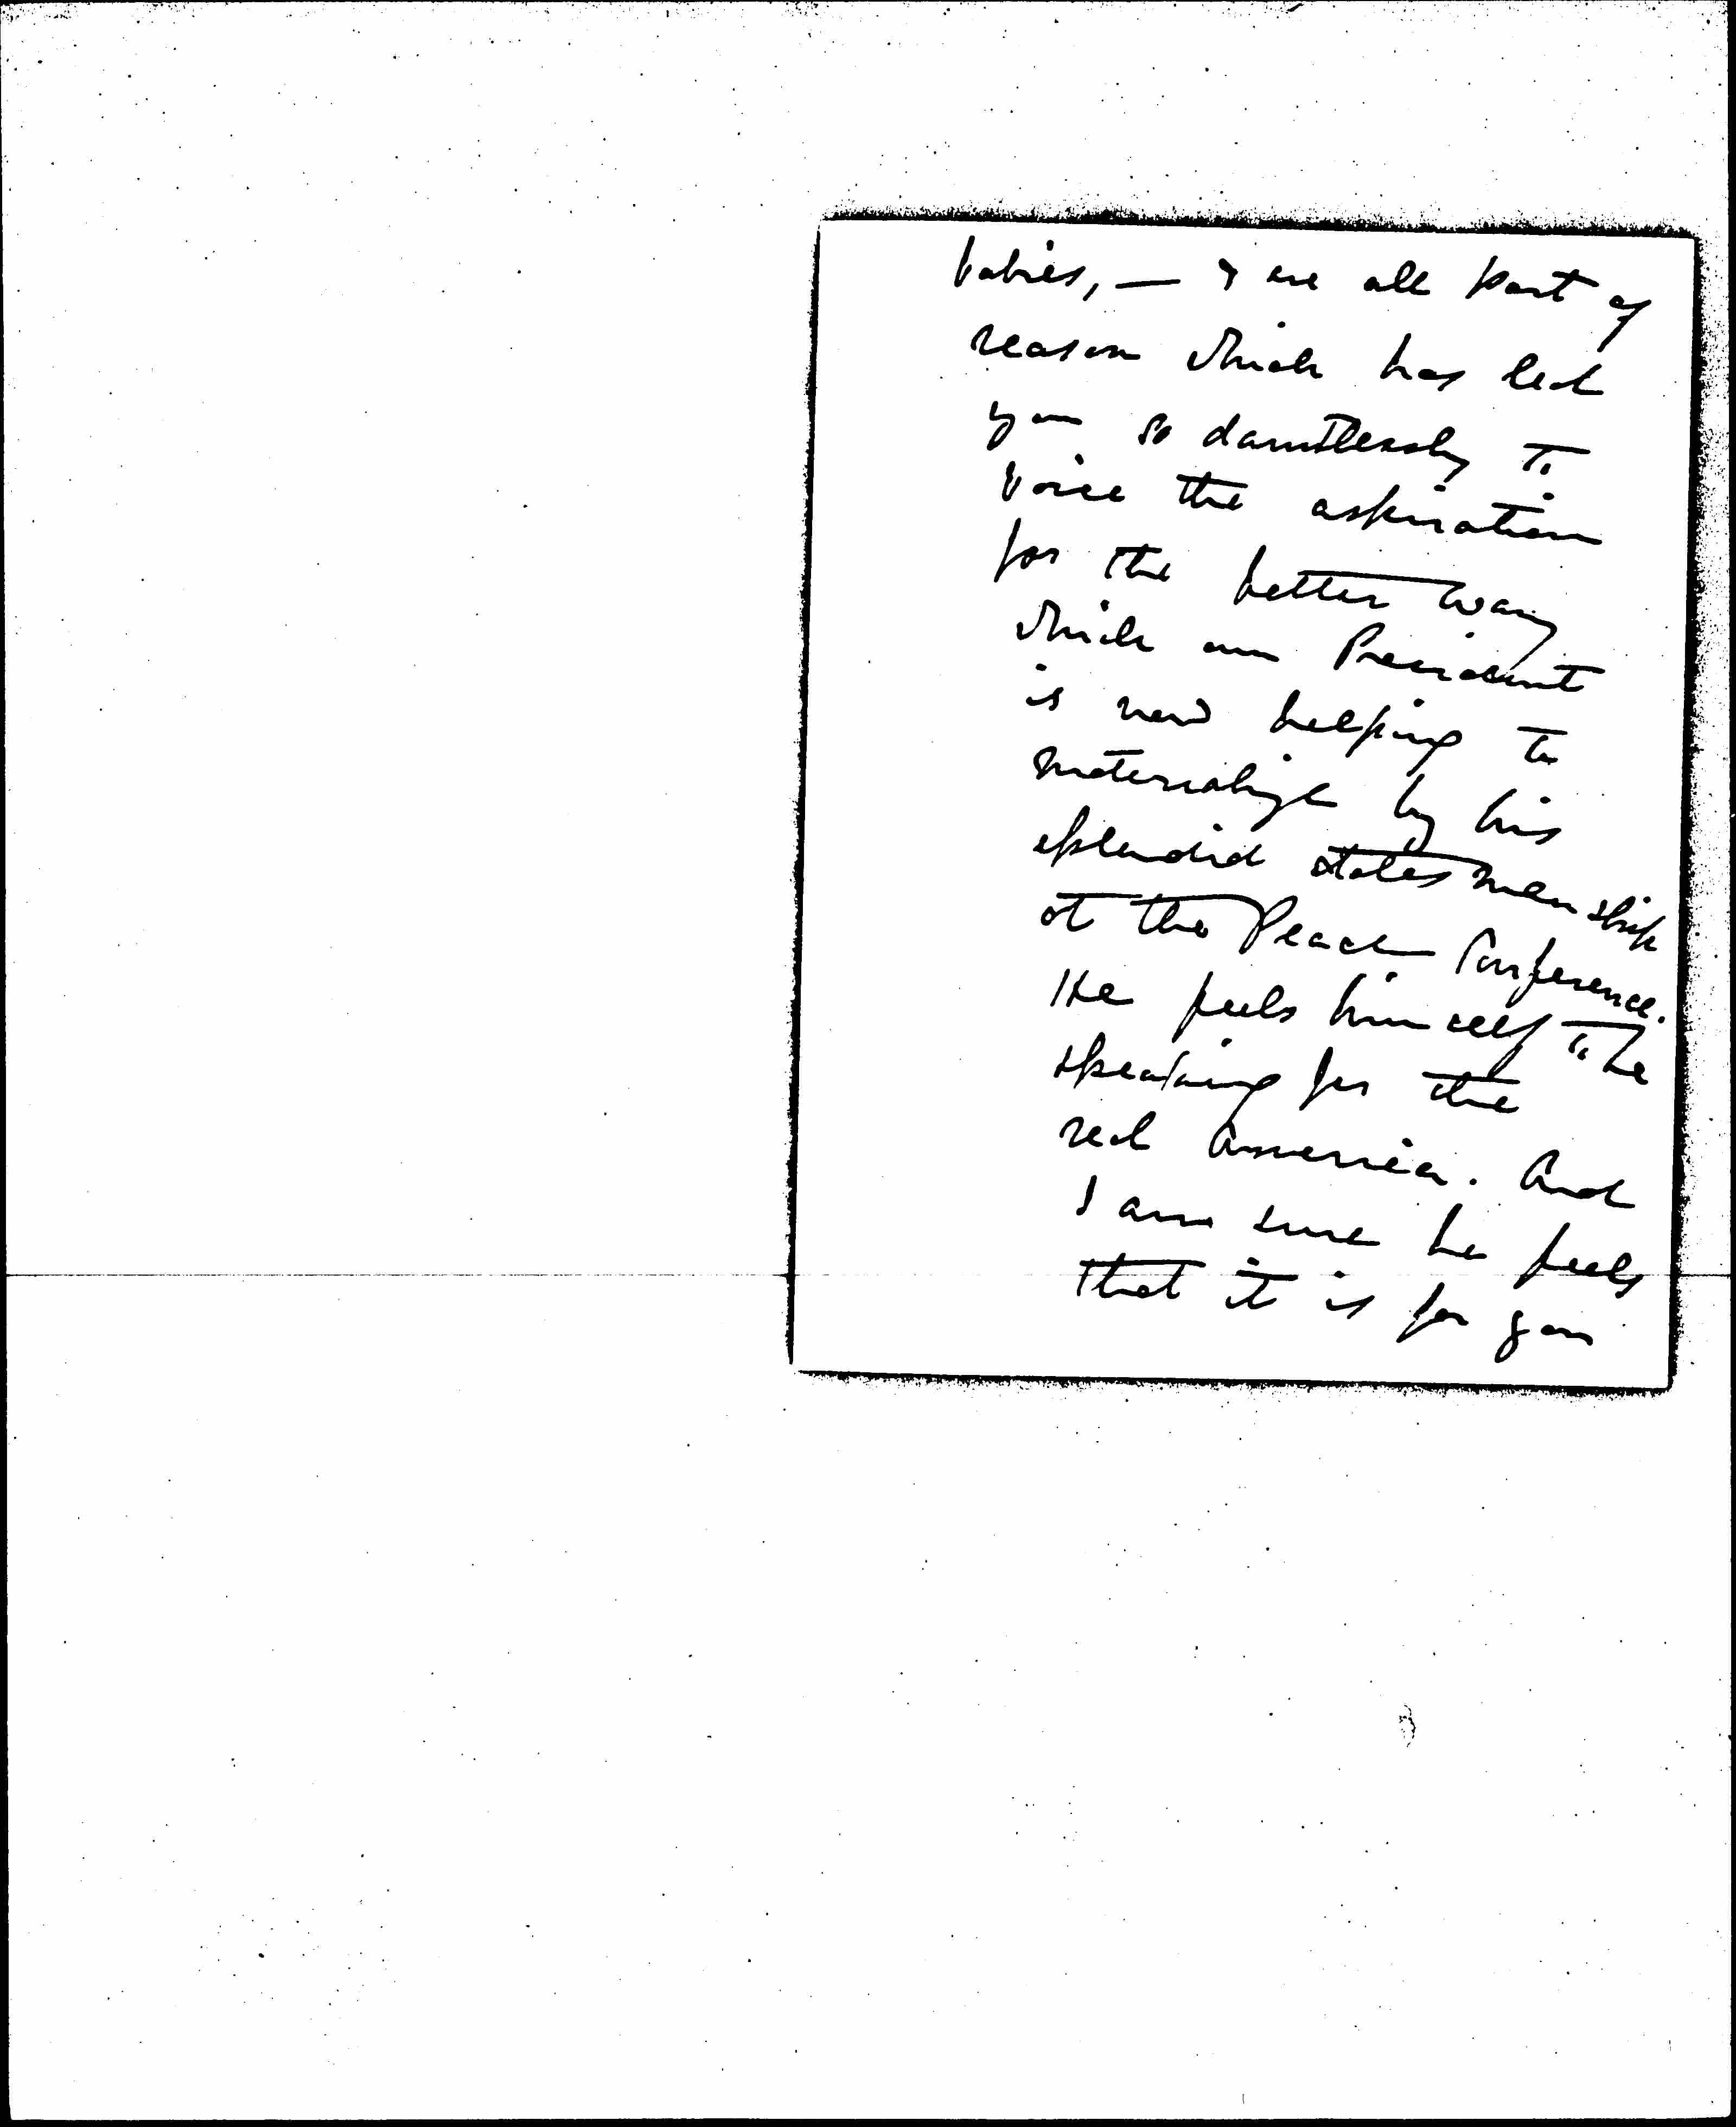 babies, — & are all part of
reason which has led
you so dauntlessly to
voice the aspiration
for the better way
which our President
is now helping to
materialize by his
splendid statesmanship
at the Peace Conference.
He feels himself to be
speaking for the
real America. And
I am sure he feels
that it is for you